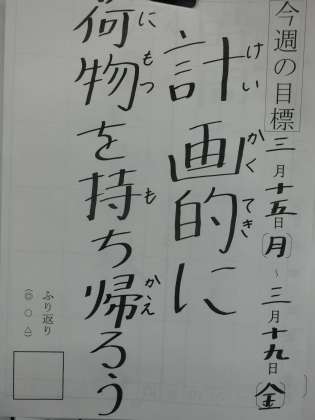 今週の目標
三月十五日(月)～三月十九日(金)
計画的に
けいかくてき
荷物を持ち帰ろう
にもつもかえ
ふり返り
(◎ ○ △)